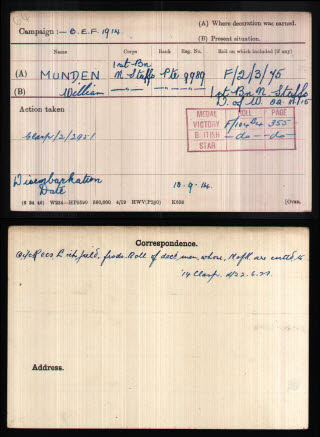 Campaign :— B.E.F. 1914.
(A) Where decoration was earned.
(B) Present situation.
Name Corps Rank Reg. No. Roll on which included (if any)
(A) MUNDEN 1st Bn N. Staffs Pte 9989 F/2/3/45
(B) William —"— —"— —"— 1st Bn N. Staffs
Action taken
MEDAL ROLL PAGE
VICTORY 355
BRITISH —do— —do—
STAR
Clasp/2/2951
Disembarkation
Date 10-9-14.
(6 34 46) W234—HP5590 500,000 4/19 HWV(P240) K608 [Over.
Correspondence.
Lichfield, fwds. Roll of decd men, whose, N of K are entitled to
'14 Clasp.
Address.